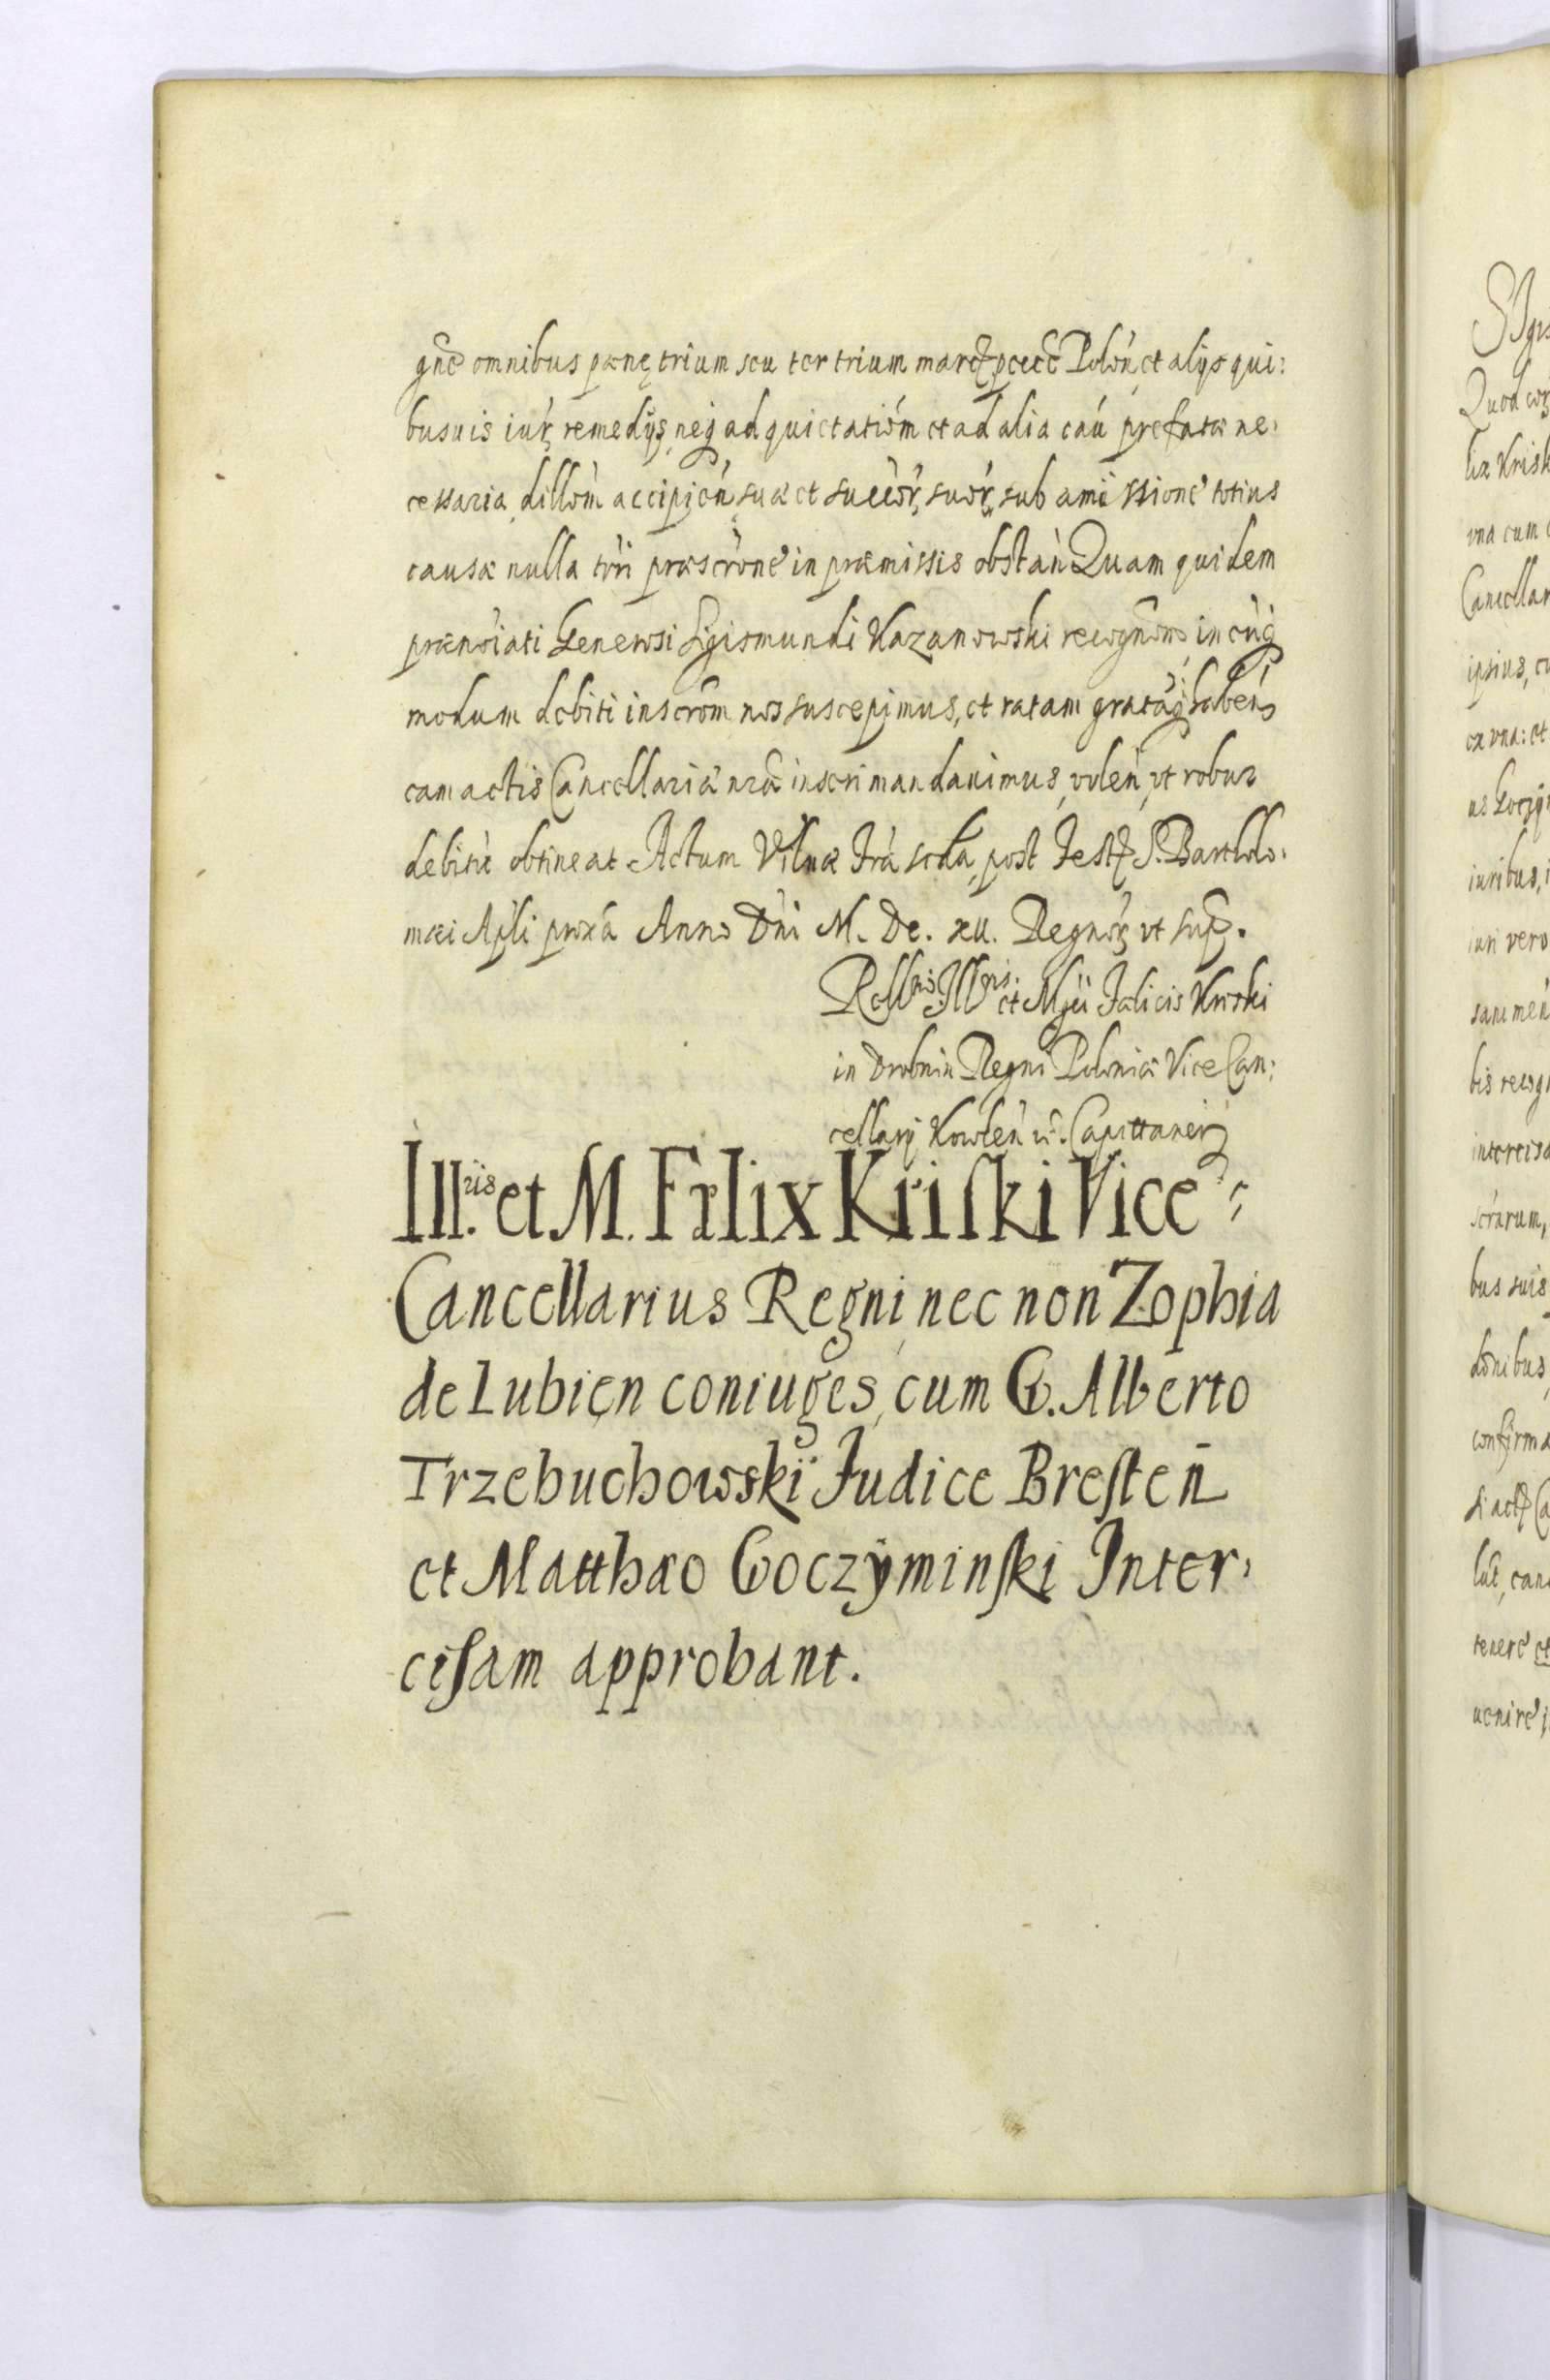 omnibus pænę trium seu ter trium marc Polon, et alijs qui:
busuis iur remedijs, neq ad quietatiom et ad alia cau prefatæ ne:
cessaria, dillom accipien, suæ et succor, suor, sub amissione totius
causæ nulla tri præscrone in præmissis obstan Quam quidem
prænoiati Generosi Sigismundi Kazanowski recognom, in cuq
modum debiti inscrom nos suscepimus, et ratam grataq haben
eam actis Cancellariæ nræ inseri mandauimus, volen, vt robur
debitu obtineat Actum Vilnæ fria scda, post Fest S. Bartholo:
mæi Apli proxa Anno Dni M. Dc. xii. Regnor vt sup.
Rell Ill et Mgci Fælicis Kriski
in Drobnin Regni Poloniæ Vice Can:
cellarij Kowlen Capittanei
Ill.ris et M. Fælix Kriſki Vice:
Cancellarius Regni, nec non Zophia
de Lubien coniuges, cum G. Alberto
Trzebuchowski Judice Breſten
et Matthæo Goczyminſki Inter:
ciſam approbant.
Quod
Kriſk
vna cum
Cancellar
ipsius,
ex vna: et
iuribus,
iuri vero
bis recog
intercisa
bus suis
confirma